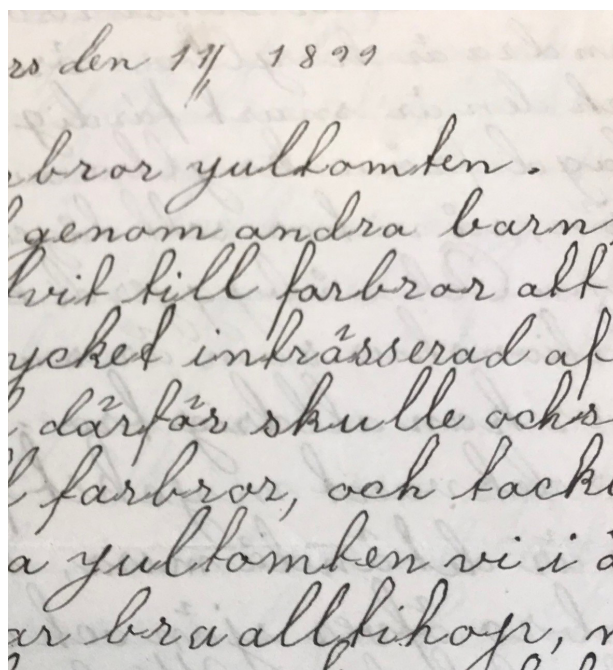 rs den 11/11 1899
bror yultomten.
genom andra barn
vit till farbror att
ycket inträsserad af
därför skulle ocks
l farbror, och tack
a yultomten vi i
ar bra alltihop,